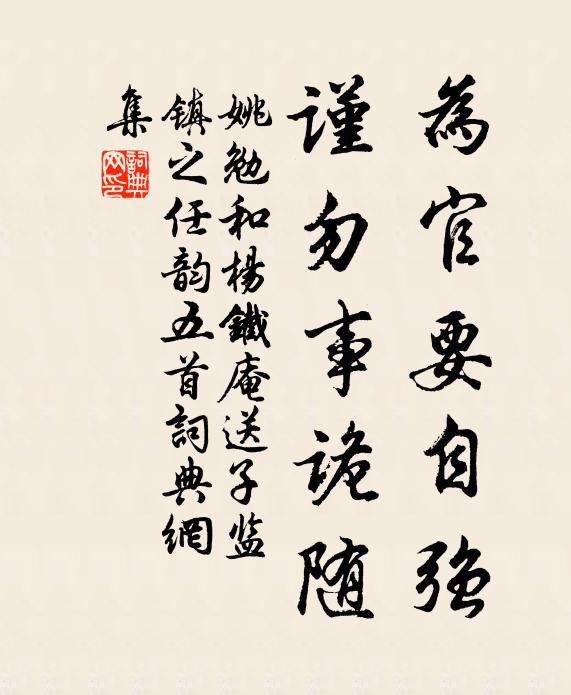 為官要自强
謹勿事詭随
姚勉和楊鐵庵送子监
鎮之任韵五首詞典網
集
詞典
网印